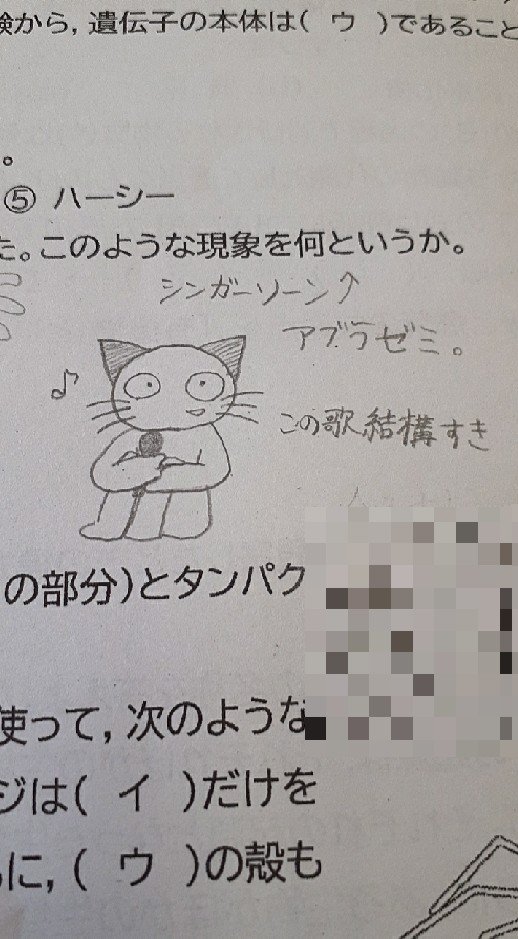 験から，遺伝子の本体は( ウ )であること
。
⑤ ハーシー
た。このような現象を何というか。
シンガーソーン↑
アブラゼミ。
♪
この歌結構すき
の部分)とタンパク
使って，次のような
ジは( イ )だけを
に，( ウ )の殻も